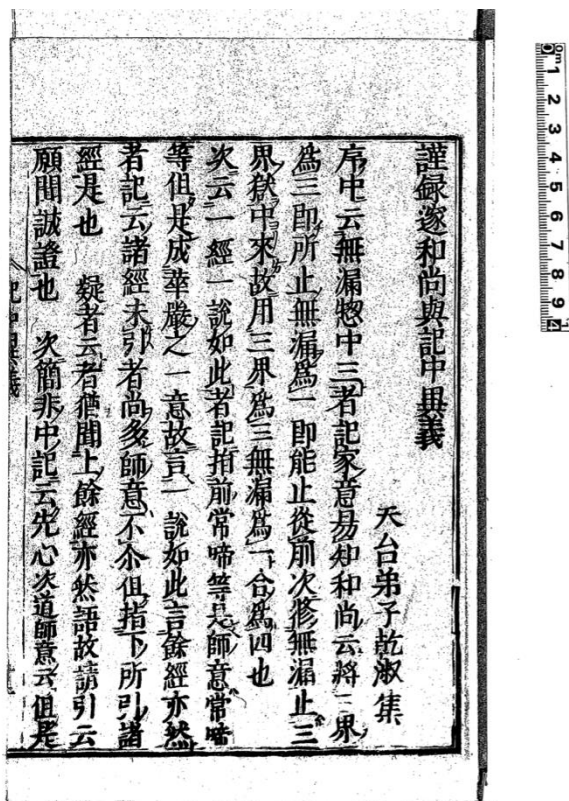 謹録邃和尚與記中異義
天台弟子乾淑集
序中云無漏惣中三者記家意易知和尚云將三界
為三即所止無漏為一即能止從前次修無漏止三
界獄中來故用三界為三無漏為一合為四也
次云一經一說如此者記指前常啼等是師意常啼
等但是成華嚴之一意故言一說如此言餘經亦然
者記云諸經未引者尚多師意不尒但指下所引諸
經是也　疑者云者猶聞上餘經亦然語故請引云
願聞誠證也　次簡非中記云先心次道師意云但是
記中異義
0m 1 2 3 4 5 6 7 8 9